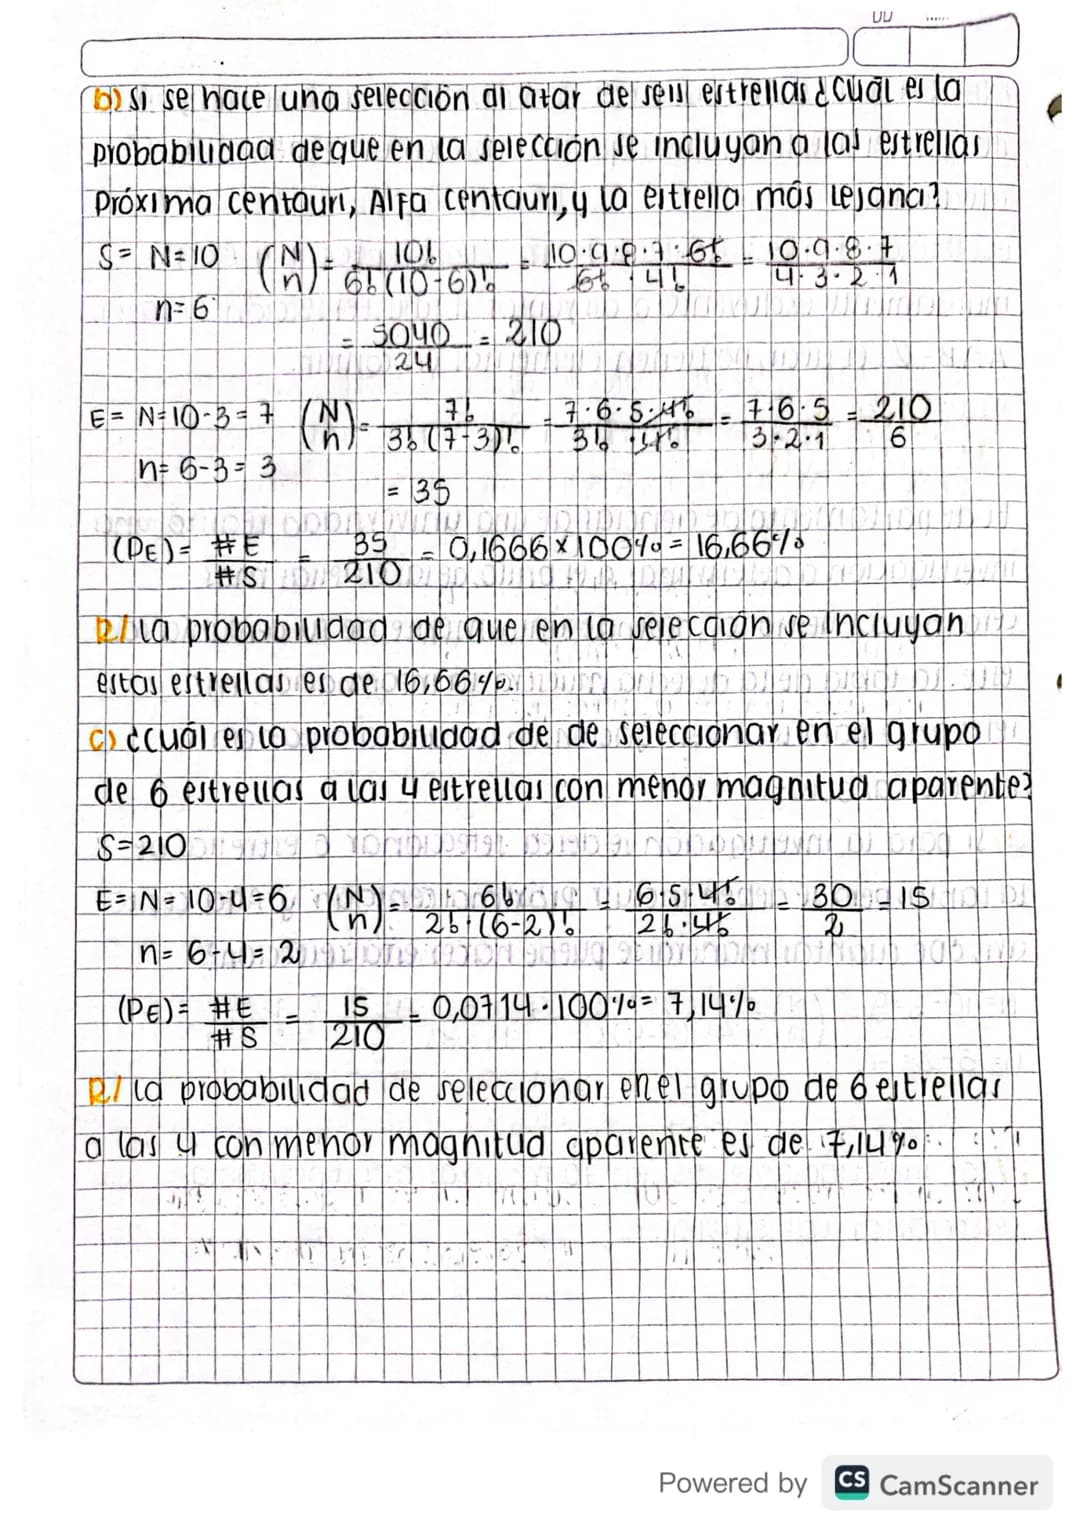 b) Si se hace una selección al azar de seis estrellas ¿cuál es la
probabilidad de que en la selección se incluyan a las estrellas
Próxima centauri, Alfa centauri, y la estrella más lejana?
S= N=10 (N n) = 10! / 6!(10-6)! = 10·9·8·7·6! / 6!·4! = 10·9·8·7 / 4·3·2·1
n=6
= 5040 / 24 = 210
E= N=10-3=7 (N n) = 7! / 3!(7-3)! = 7·6·5·4! / 3!·4! = 7·6·5 / 3·2·1 = 210 / 6
n= 6-3= 3
= 35
(PE)= #E / #S = 35 / 210 = 0,1666×100%= 16,66%
R/ La probabilidad de que en la selección se incluyan
estas estrellas es de 16,66%.
c) ¿cuál es la probabilidad de de seleccionar en el grupo
de 6 estrellas a las 4 estrellas con menor magnitud aparente?
S=210
E= N= 10-4=6 (N n) = 6! / 2!·(6-2)! = 6·5·4! / 2!·4! = 30 / 2 = 15
n= 6-4= 2
(PE)= #E / #S = 15 / 210 = 0,0714·100%= 7,14%
R/ La probabilidad de seleccionar en el grupo de 6 estrellas
a las 4 con menor magnitud aparente es de 7,14%.
Powered by CS CamScanner